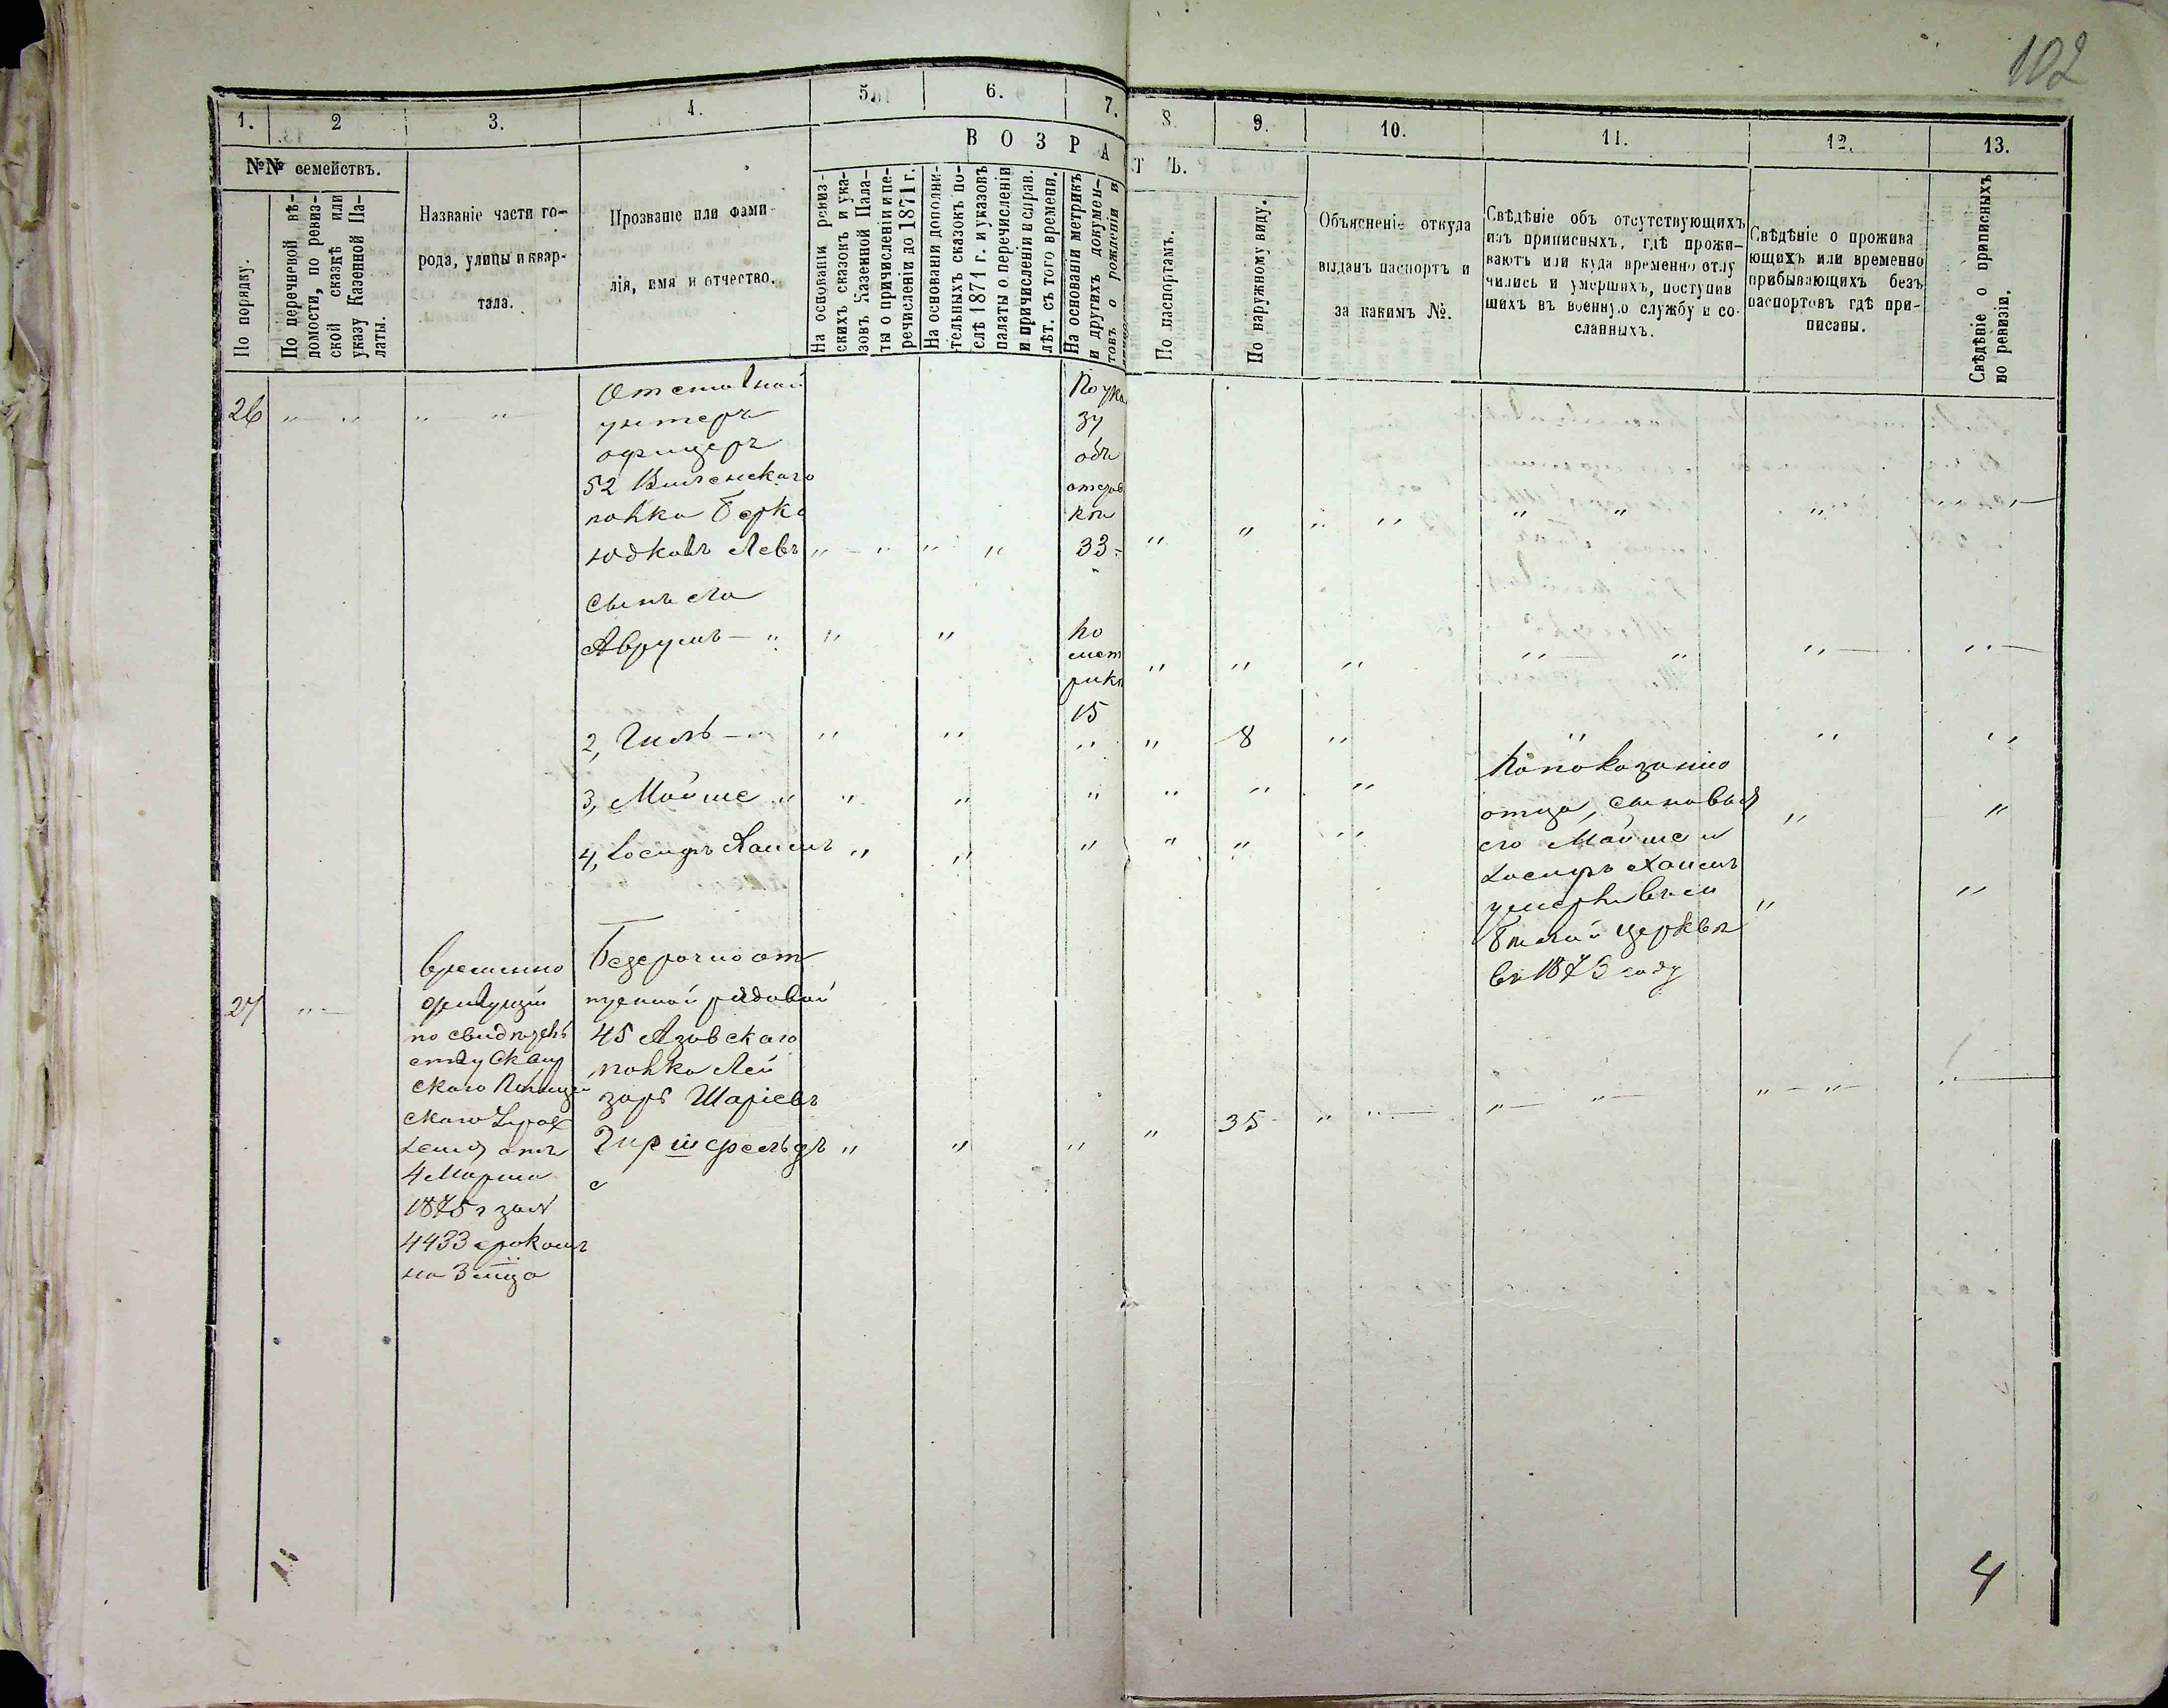 102
1. 2 3. 4. 5. 6. 7. 8. 9. 10. 11. 12. 13.
В О З Р А Т Ъ.
№№ семействъ.
По порядку.
По перечневой вѣ-
домости, по ревиз-
ской сказкѣ или
указу Казенной Па-
латы.
Названіе части го-
рода, улицы и квар-
тала.
Прозваніе или фами-
лія, имя и отчество.
На основаніи ревиз-
скихъ сказокъ и ука-
зовъ Казенной Пала-
ты о причисленіи и пе-
речисленіи до 1871 г.
На основаніи дополни-
тельныхъ сказокъ по-
слѣ 1871 г. и указовъ
палаты о перечисленіи
и причисленіи и справ.
лѣт. съ того времени.
На основаніи метрикъ
и другихъ докумен-
товъ о рожденіи и
По паспортамъ.
По наружному виду.
Объясненіе откуда
выданъ паспортъ и
за какимъ №.
Свѣдѣніе объ отсутствующихъ
изъ приписныхъ, гдѣ прожи-
ваютъ или куда временно отлу
чились и умершихъ, поступив
шихъ въ военную службу и со-
сланныхъ.
Свѣдѣніе о прожива
ющихъ или временно
прибывающихъ безъ
паспортовъ гдѣ при-
писаны.
Свѣдѣніе о приписныхъ
по ревизіи.
26 " " " "
Отставной
унтеръ
офицеръ
52 Виленскаго
полка Берко
Юдковъ Левъ " " " "
По ука
зу
объ
отстав
кѣ
33 " " " " " " " "
сынъ его
Аврумъ " " "
по
мет
рикѣ
15 " " " " " " "
2, Гиль " " " " 8 " " " "
3, Мойше " " " " " " " " "
4, Іосифъ Хаимъ " " " " " " " "
По показанію
отца, сыновья
его Мойше и
Іосифъ Хаимъ
умерли въ м
Бѣлой Церкви
въ 1873 году
27 "
временно
по свидѣтель
ству Сквир
скаго Полицей
скаго Управ
ленія отъ
4 Марта
1875 г за №
4433 срокомъ
на 3 мца
Безсрочно от
пускной рядовой
45 Азовскаго
полка Лей
зоръ Шаріевъ
Гиршфельдъ " " " " 35 " " " " " " "
4